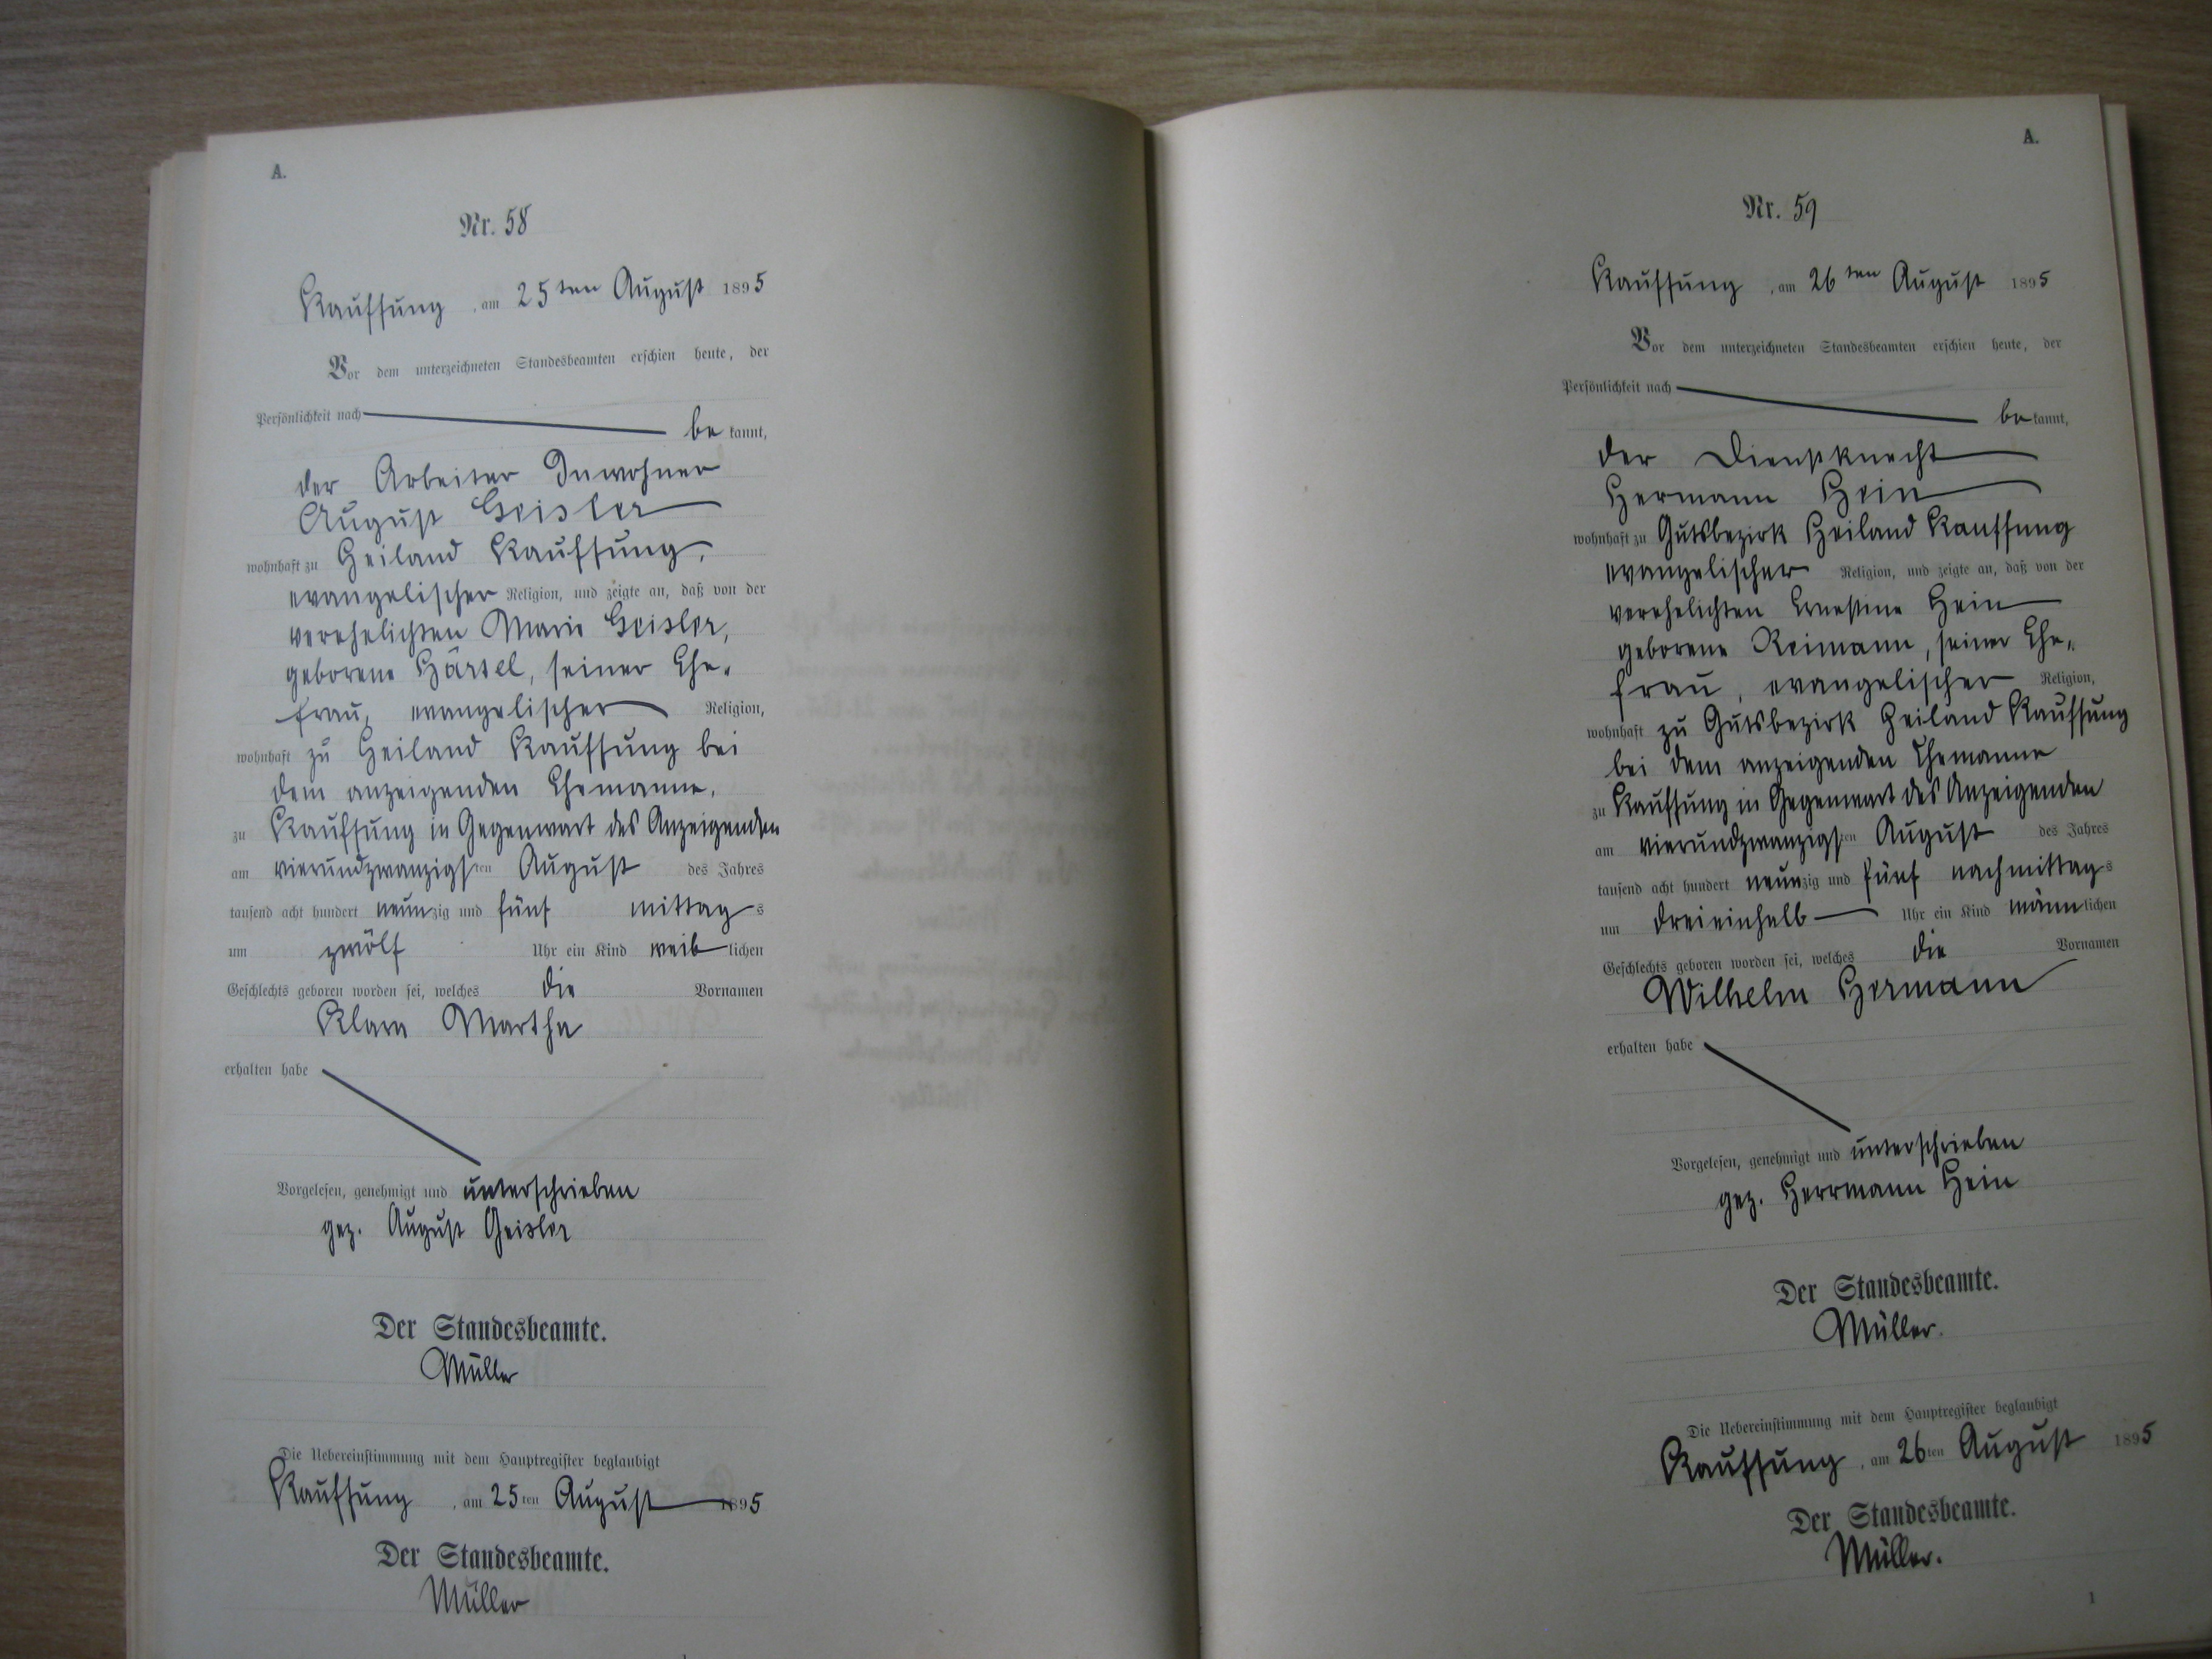 A.
Nr. 58
Kauffung, am 25ten August 1895
Vor dem unterzeichneten Standesbeamten erschien heute, der
Persönlichkeit nach
be kannt,
der Arbeiter Inwohner
August Geisler
wohnhaft zu Heiland Kauffung,
evangelischer Religion, und zeigte an, daß von der
verehelichten Marie Geisler,
geborene Härtel, seiner Ehe-
frau, evangelischer Religion,
wohnhaft zu Heiland Kauffung bei
dem anzeigenden Ehemanne,
zu Kauffung in Gegenwart des Anzeigenden
am vierundzwanzigsten August des Jahres
tausend acht hundert neunzig und fünf mittags
um zwölf Uhr ein Kind weiblichen
Geschlechts geboren worden sei, welches die Vornamen
Klara Martha
erhalten habe
Vorgelesen, genehmigt und unterschrieben
gez. August Geisler
Der Standesbeamte.
Müller
Die Uebereinstimmung mit dem Hauptregister beglaubigt
Kauffung, am 25ten August 1895
Der Standesbeamte.
Müller
A.
Nr. 59
Kauffung, am 26ten August 1895
Vor dem unterzeichneten Standesbeamten erschien heute, der
Persönlichkeit nach
be kannt,
der Dienstknecht
Hermann Hein
wohnhaft zu Gutsbezirk Heiland Kauffung
evangelischer Religion, und zeigte an, daß von der
verehelichten Ernestine Hein
geborene Reimann, seiner Ehe-
frau, evangelischer Religion,
wohnhaft zu Gutsbezirk Heiland Kauffung
bei dem anzeigenden Ehemanne
zu Kauffung in Gegenwart des Anzeigenden
am vierundzwanzigsten August des Jahres
tausend acht hundert neunzig und fünf nachmittags
um dreieinhalb Uhr ein Kind männlichen
Geschlechts geboren worden sei, welches die Vornamen
Wilhelm Hermann
erhalten habe
Vorgelesen, genehmigt und unterschrieben
gez. Herrmann Hein
Der Standesbeamte.
Müller.
Die Uebereinstimmung mit dem Hauptregister beglaubigt
Kauffung, am 26ten August 1895
Der Standesbeamte.
Müller.
1